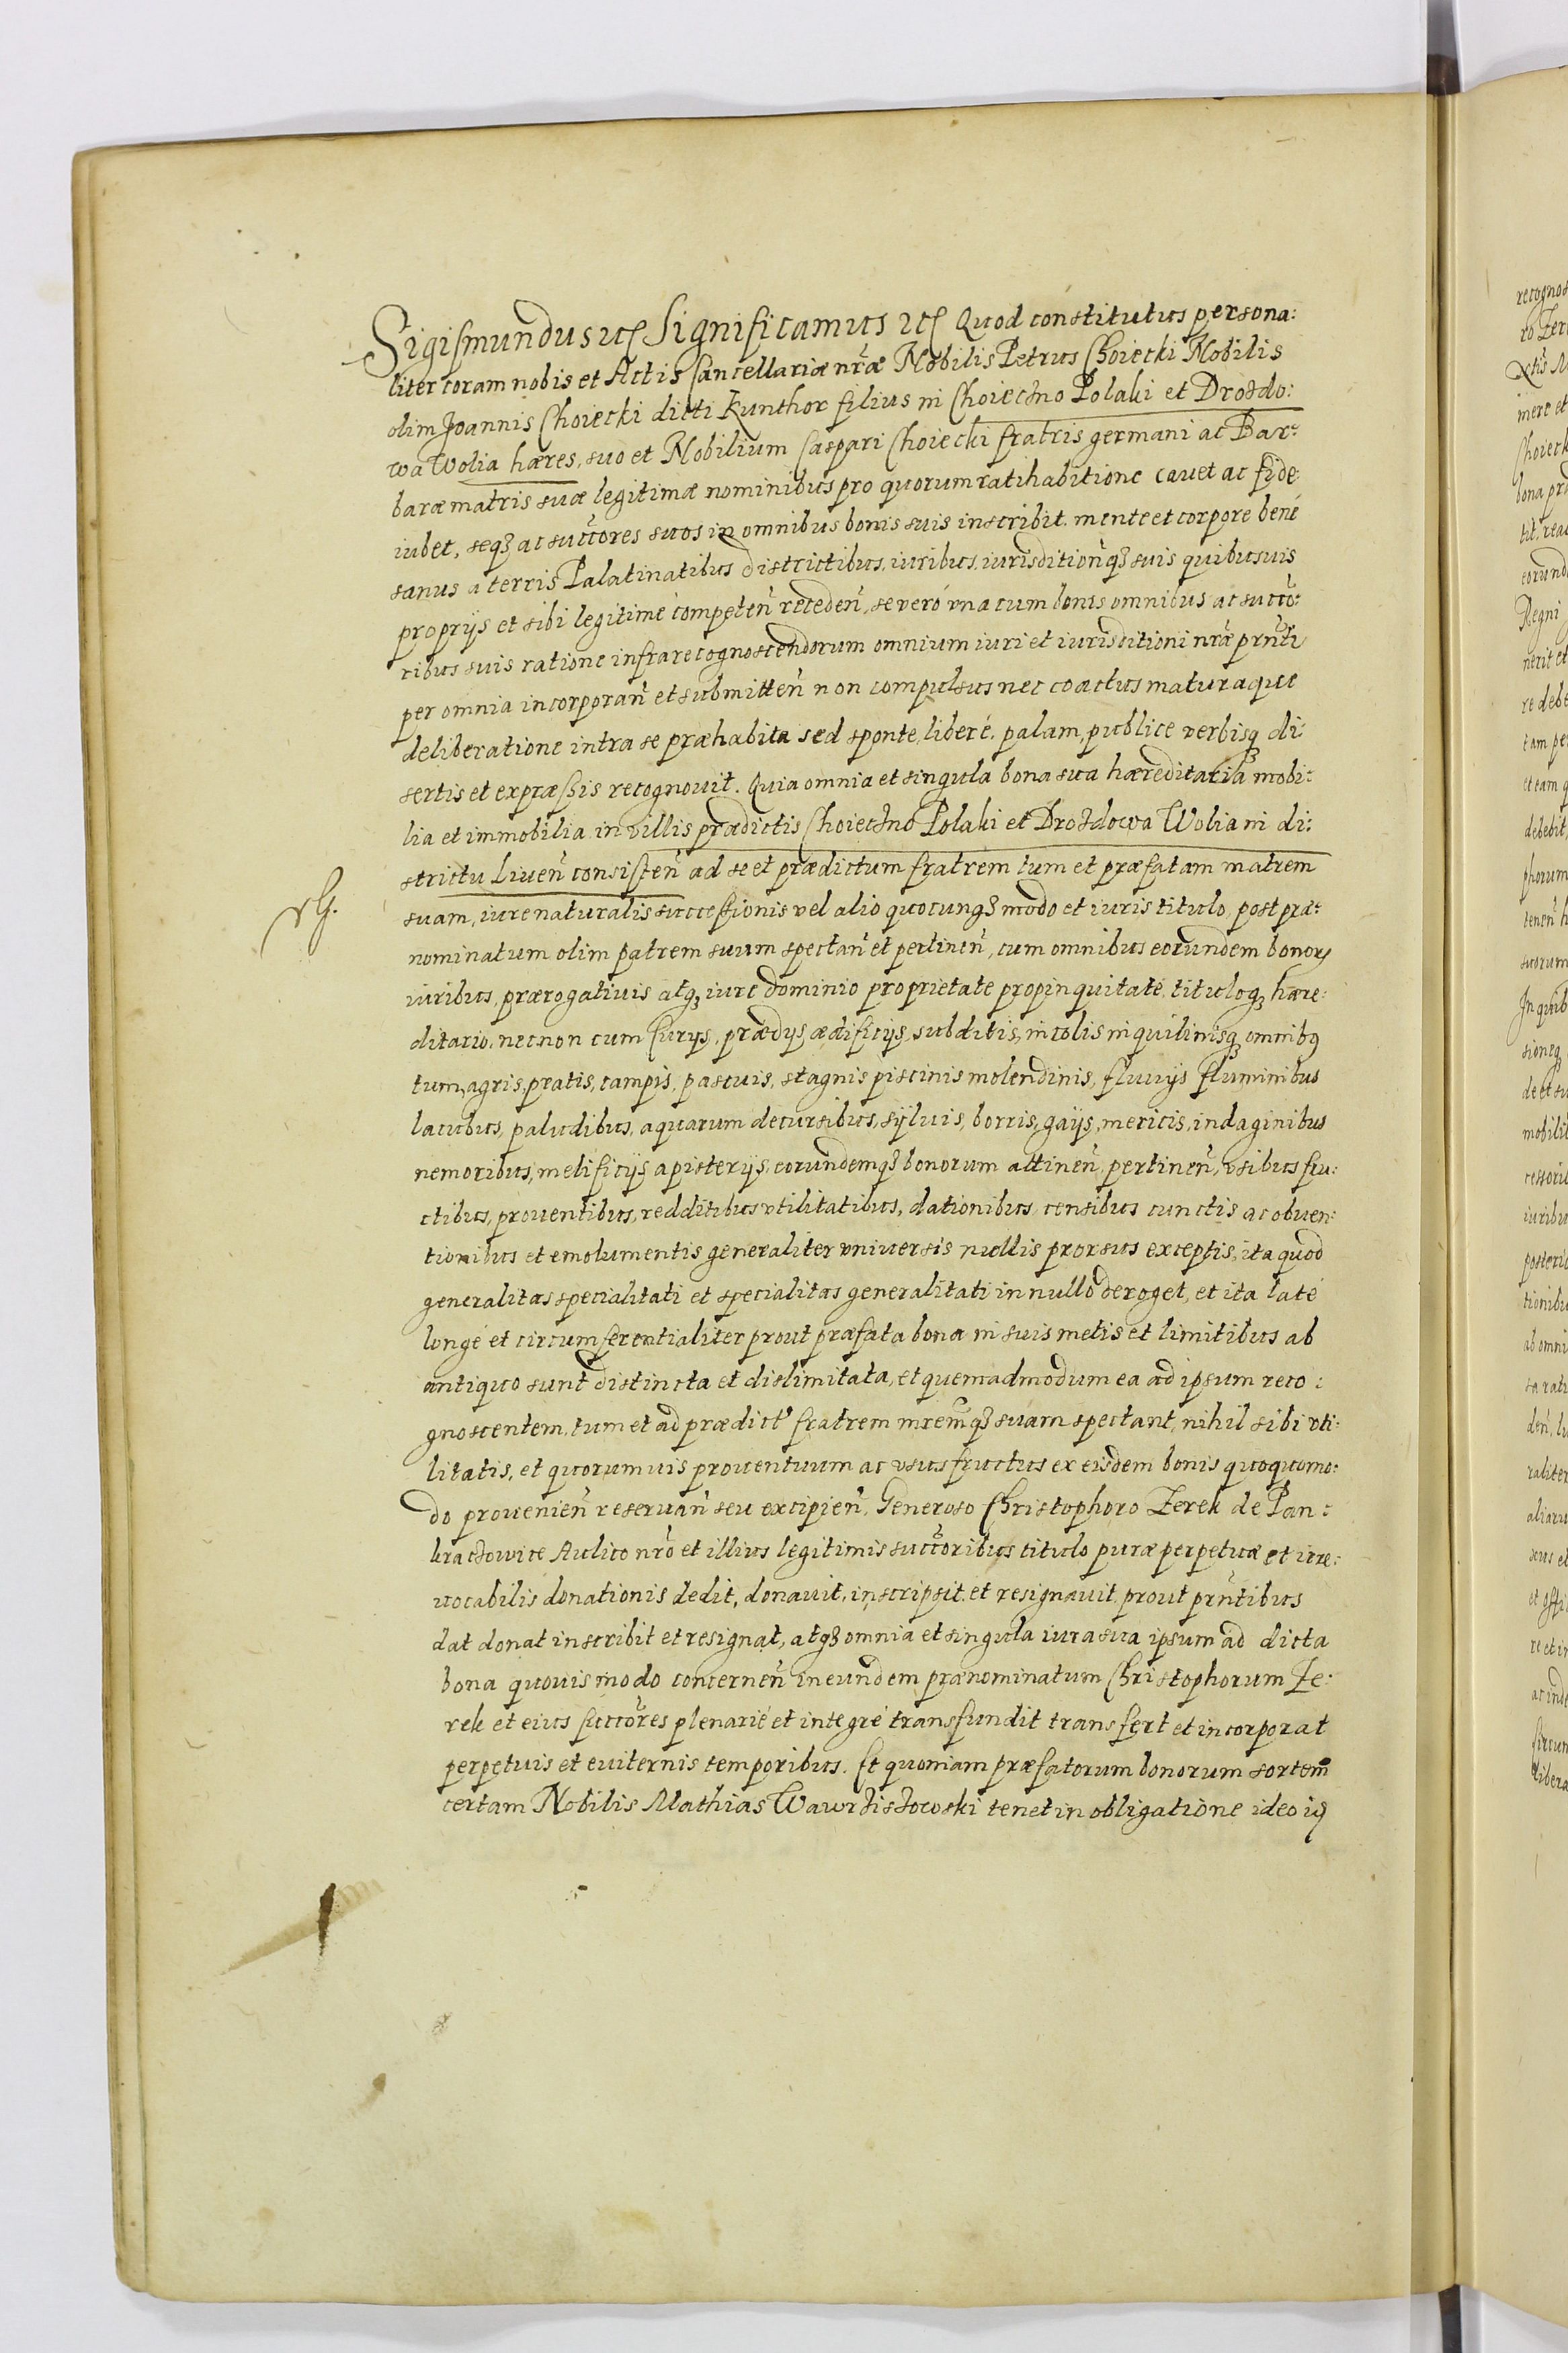 Sigismundus etc Significamus etc Quod constitutus persona:
liter coram nobis et Actis Cancellariæ nr̃æ Nobilis Petrus Choiecki Nobilis
olim Joannis Choiecki dicti Kunthor filius in Choieczno Polaki et Drozdo:
wa Wolia hæres, suo et Nobilium Caspari Choiecki fratris germani ac Bar:
baræ matris suæ legitimæ nominibus pro quorum ratihabitione cavet ac fide:
iubet, seqꝫ ac succõres suos in omnibus bonis suis inscribit. mente et corpore bené
sanus a terris Palatinatibus districtibus, iuribus, iurisditionqꝫ suis quibusuis
proprijs et sibi legitimé competeñ recedeñ, se veró vna cum bonis omnibus ac succo:
ribus suis ratione infrarecognoscendorum omnium iuri et iurisditioni nr̃æ prñti
per omnia incorporañ et submitteñ non compulsus nec coactus maturaque
deliberatione intra se præhabita sed sponte, liberé, palam, publice verbisqꝫ di:
sertis et expræssis recognovit. Quia omnia et singula bona sua hæreditaria mobi:
lia et immobilia in villis prædictis Choieczno Polaki et Drozdowa Wolia in di:
strictu Liueñ consisteñ ad se et prædictum fratrem tum et præfatam matrem
suam, iure naturalis successionis vel alio quocunqꝫ modo et iuris titulo, post præ:
nominatum olim patrem suum spectañ et pertineñ, cum omnibus eorundem bonorꝝ
iuribus, prærogativis atqꝫ iure dominio proprietate propinquitate, tituloqꝫ hære:
ditario, necnon cum Curijs, prædijs ædificijs, subditis, incolis inquilinisqꝫ omnibꝰ
tum, agris, pratis, campis, pascuis, stagnis piscinis molendinis, fluvijs fluminibus
lacubus, paludibus, aquarum decursibus, sylvis, borris, gaijs, mericis, indaginibus
nemoribus, melificijs apisterijs, eorundemqꝫ bonorum attineñ, pertineñ, vsibus fru:
ctibus, proventibus, redditibus vtilitatibus, dationibus, censibus cunctis ac obuen:
tionibus et emolumentis generaliter vniversis nullis prorsus exceptis, ita quod
generalitas specialitati et specialitas generalitati in nullo deroget, et ita laté
longé et circumferentialiter prout præfata bona in suis metis et limitibus ab
antiquo sunt distincta et dislimitata, et quemadmodum ea ad ipsum reco:
gnoscentem, tum et ad prædict' fratrem mr̃emqꝫ suam spectant, nihil sibi vti:
litatis, et quorumuis prouentuum ac vsusfructus ex eisdem bonis quoquomo:
do provenieñ reseruañ seu excipieñ, Generoso Christophoro Zerek de Pan:
kraczowice Aulico nr̃o et illius legitimis succõribus titulo puræ perpetuæ et irre:
vocabilis donationis dedit, donauit, inscripsit et resignauit prout prñtibus
dat donat inscribit et resignat, atqꝫ omnia et singula iura sua ipsum ad dicta
bona quouis modo concerneñ in eundem prænominatum Christophorum Ze:
rek et eius succõres plenarié et integré transfundit transfert et incorporat
perpetuis et euiternis temporibus. Et quoniam præfatorum bonorum sortem
certam Nobilis Mathias Wawrziszowski tenet in obligatione ideo